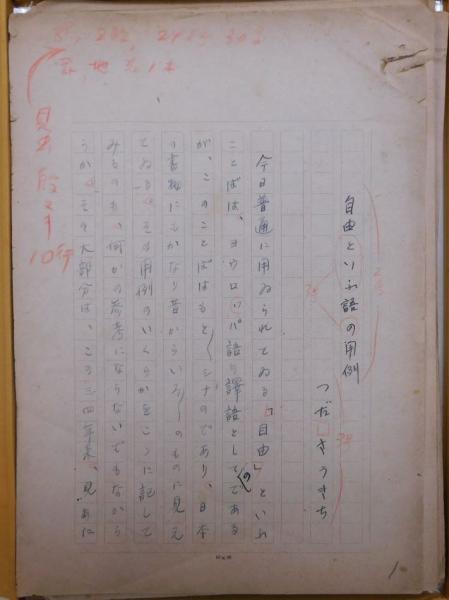 自由といふ語の用例
つださうきち
今日普通に用ゐられてゐる「自由」といふ
ことばは、ヨウロッパ語の譯語としてのである
が、このことばはもと〳〵シナのであり、日本
の書物にもかなり昔からいろ〳〵のものに見え
てゐる。その用例のいくらかをこゝに記して
みるのも、何かの參考にならないでもなから
うか。その大部分は、この三四年來、見あに
見出
10行
1